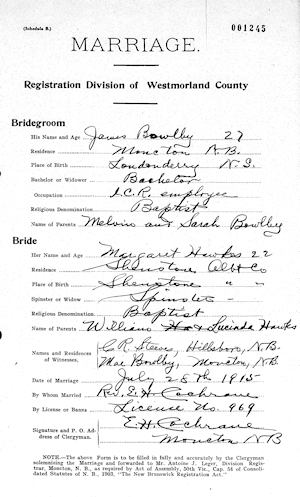 (Schedule B.) 001245
MARRIAGE.
Registration Division of Westmorland County
Bridegroom
His Name and Age James Bowlby 27
Residence Moncton N.B.
Place of Birth Londonderry N.S.
Bachelor or Widower Bachelor
Occupation I.C.R. employee
Religious Denomination Baptist
Name of Parents Melvin and Sarah Bowlby
Bride
Her Name and Age Margaret Hawkes 22
Residence Shenstone, Albt Co
Place of Birth Shenstone " "
Spinster or Widow Spinster
Religious Denomination Baptist
Name of Parents William & Lucinda Hawkes
Names and Residences of Witnesses, C.R. Steeves, Hillsboro, N.B.
Mae Bowlby, Moncton, N.B.
Date of Marriage July 28th 1915
By Whom Married Rev. E.H. Cochrane
By License or Banns License No. 969
Signature and P. O. Address of Clergyman. E.H. Cochrane
Moncton N B
NOTE.—The above Form is to be filled in fully and accurately by the Clergyman
solemnizing the Marriage and forwarded to Mr. Antoine J. Leger, Division Registrar,
Moncton, N. B., as required by Act of Assembly, 50th Vic., Cap. 5d of Consolidated
Statutes of N. B., 1903, "The New Brunswick Registration Act."